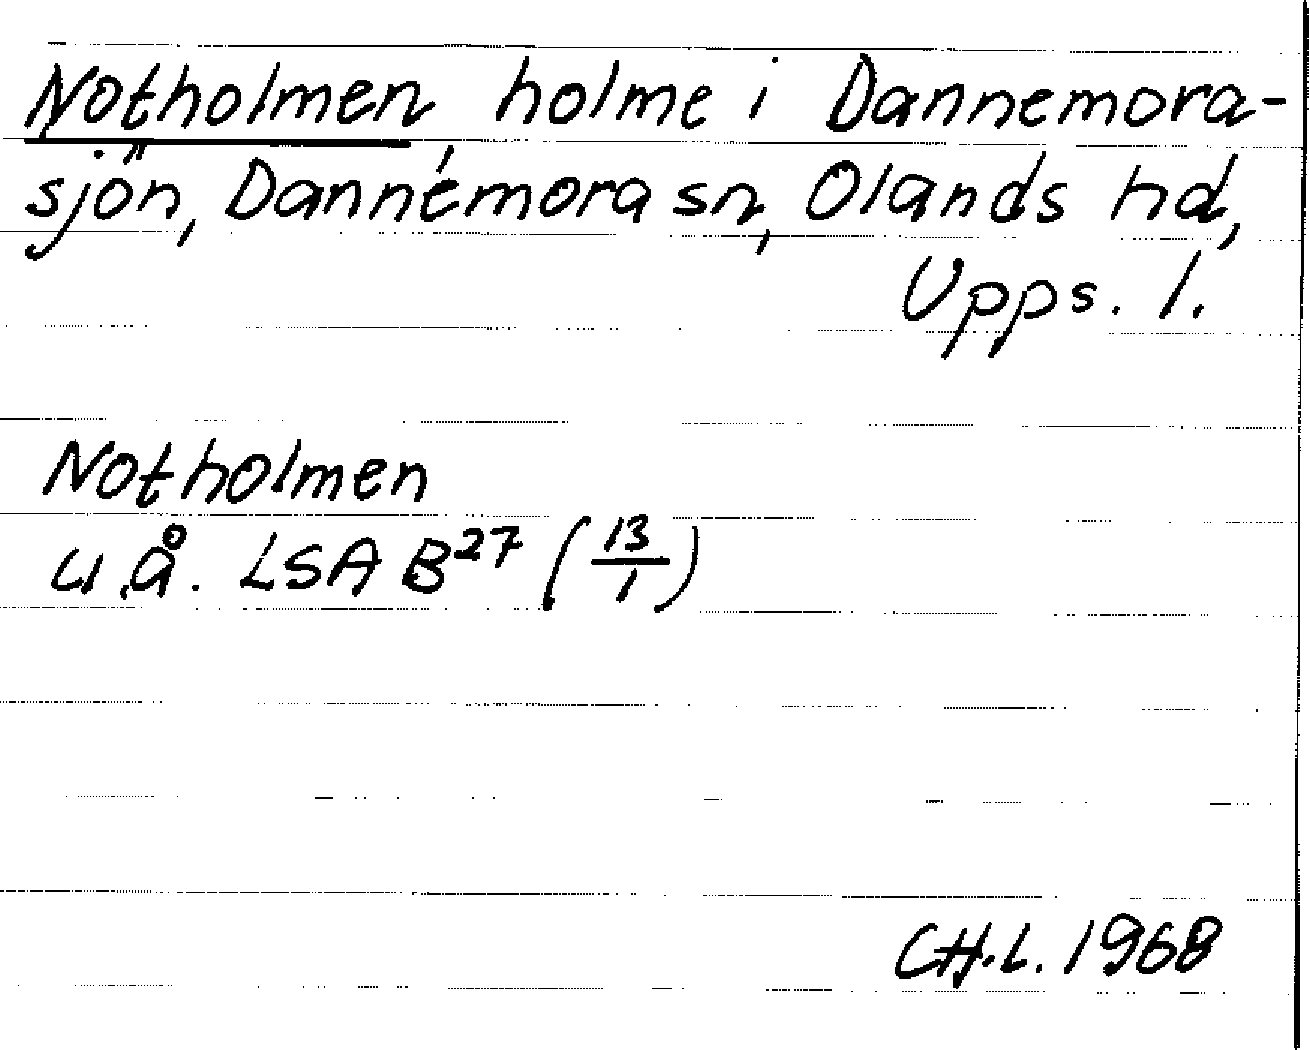 Notholmen, holme i Dannemora-
sjön, Dannemora sn, Olands hd,
Upps. l.
Notholmen
u.å. LSA B²⁷ (13/1)
CH.L. 1968